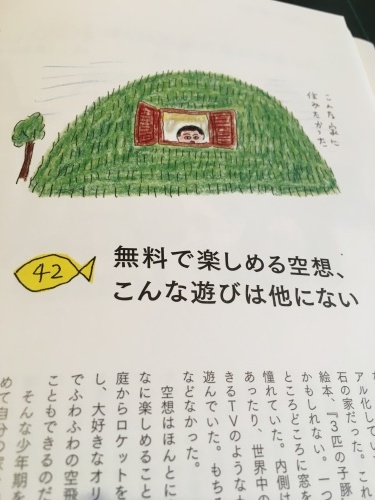 こんな家に
住みたかった
42
無料で楽しめる空想、
こんな遊びは他にない
アル化して
石の家だった。これ
絵本、『3匹の子豚
かもしれない。一つ
ところどころに窓を
憧れていた。内側
あったり、世界中の
きるTVのような
遊んでいた。もち
などなかった。
空想はほんとに
なに楽しめること
庭からロケットを
し、大好きなオリ
でふわふわの空飛
こともできるのだ
そんな少年期を
めて自分の